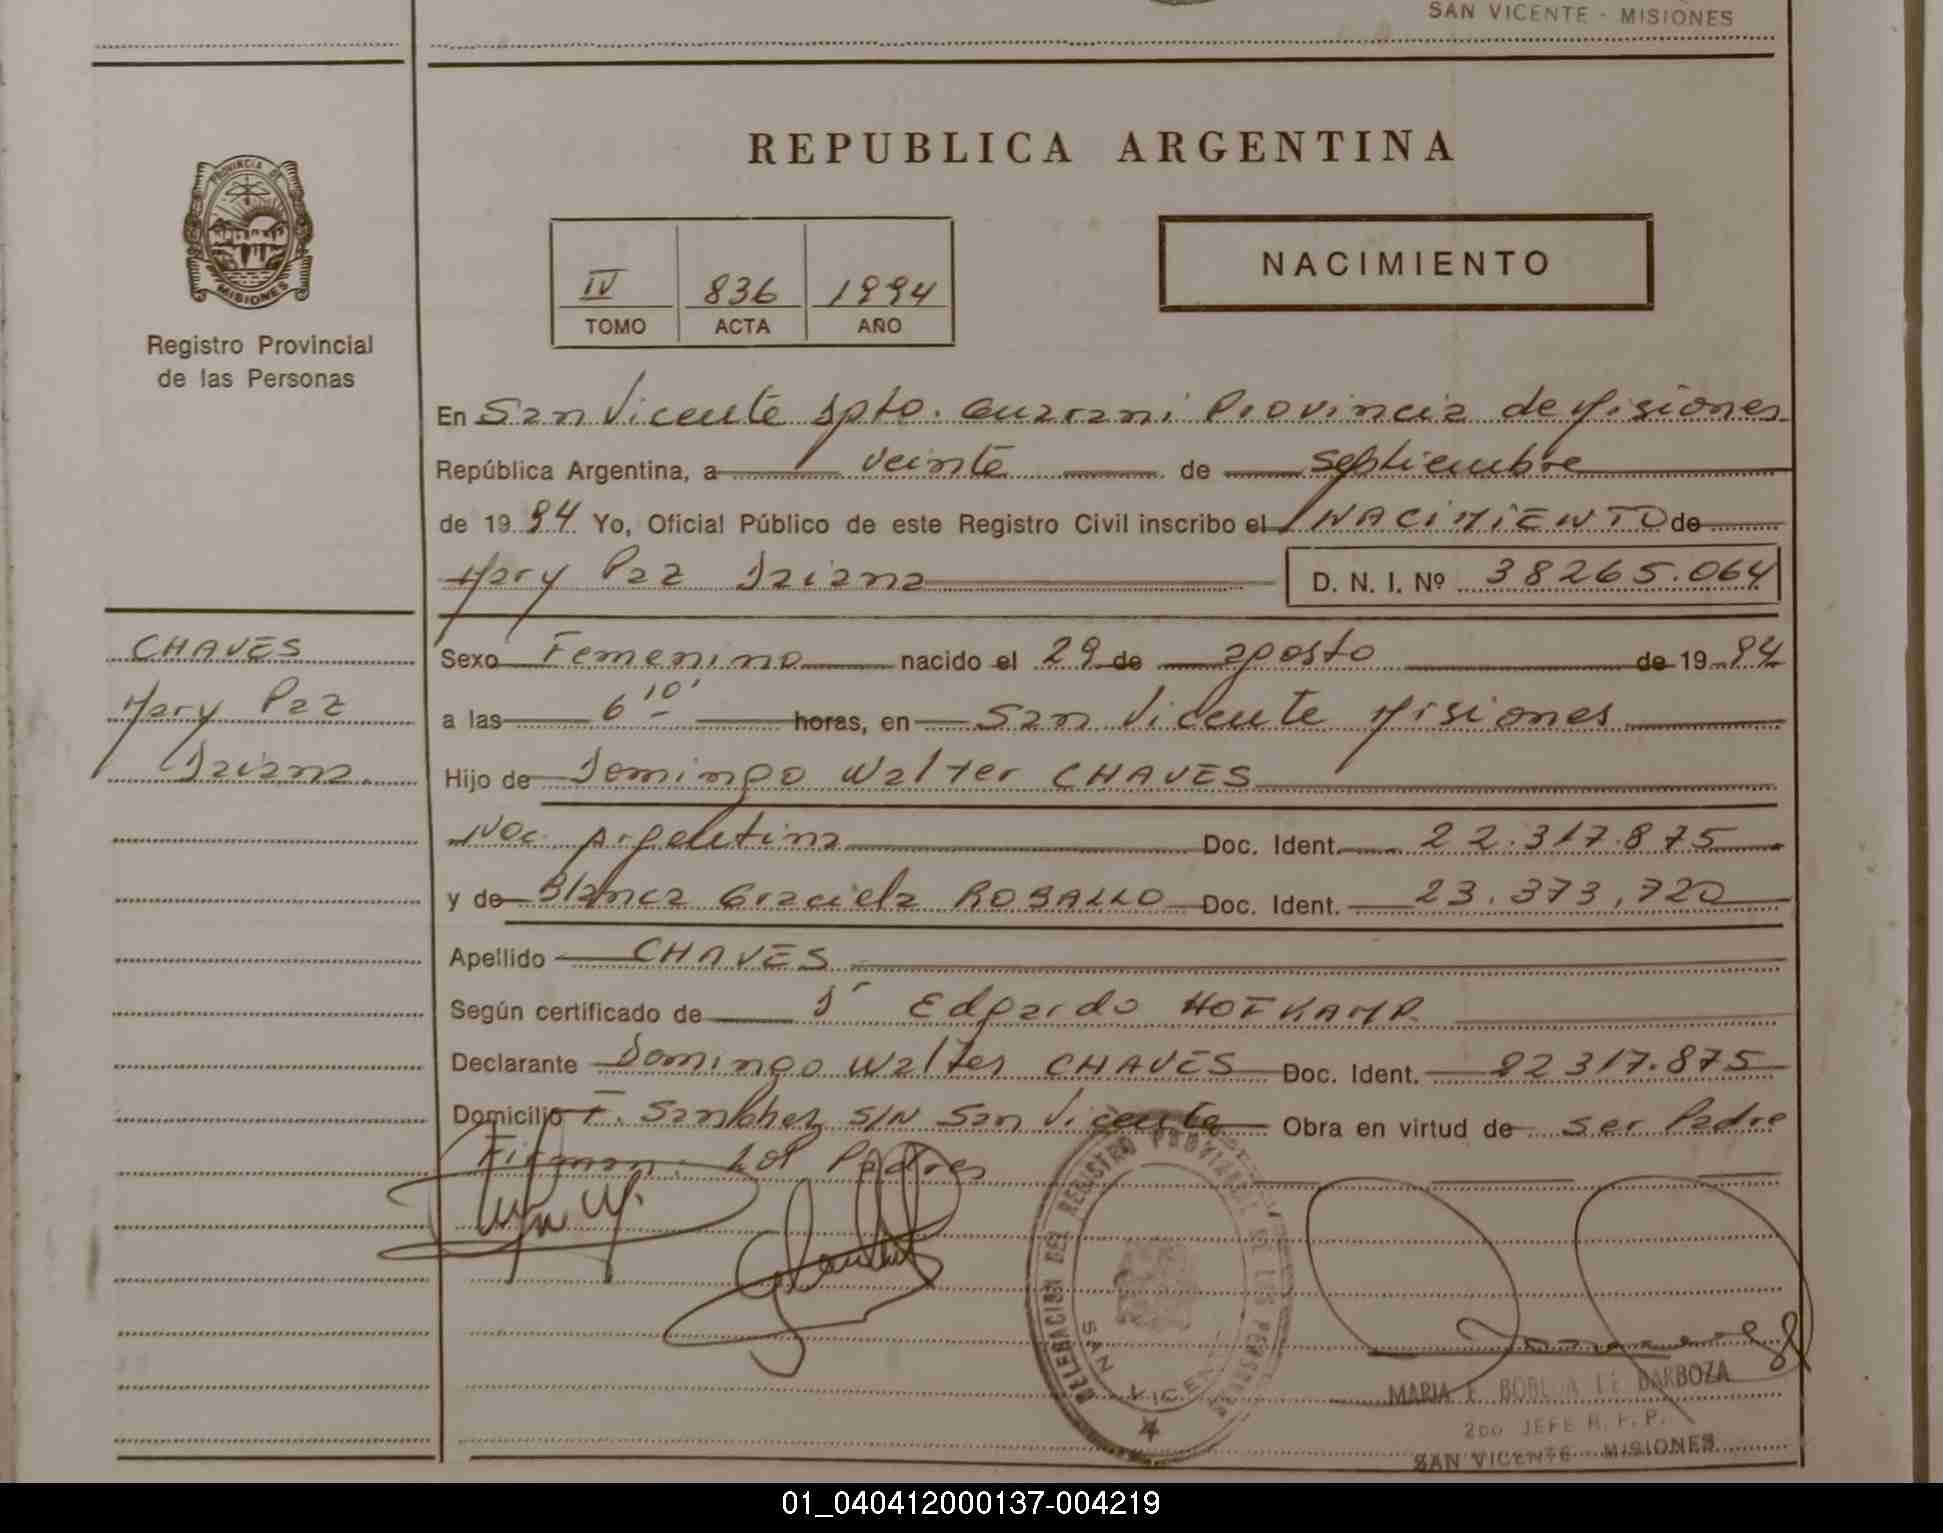 SAN VICENTE - MISIONES
REPUBLICA ARGENTINA
PROVINCIA DE
MISIONES
Registro Provincial
de las Personas
IV 836 1994
TOMO ACTA AÑO
NACIMIENTO
En San Vicente Dpto. Guarani Provincia de Misiones
República Argentina, a veinte de septiembre
de 19 94 Yo, Oficial Público de este Registro Civil inscribo el NACIMIENTO de
Mary Paz Daiana D. N. I. Nº 38265.064
CHAVES
Mary Paz
Daiana
Sexo Femenino nacido el 29 de agosto de 19 94
a las 6 10' horas, en San Vicente Misiones
Hijo de Domingo Walter CHAVES
Nac. Argentina Doc. Ident. 22.317.875
y de Blanca Graciela ROBALLO Doc. Ident. 23.373,720
Apellido CHAVES
Según certificado de Dr Edgardo HOFKAMP
Declarante Domingo Walter CHAVES Doc. Ident. 22317.875
Domicilio F. Sanchez S/N San Vicente Obra en virtud de ser Padre
Firman: Los Padres
DELEGACION DEL REGISTRO PROVINCIAL DE LAS PERSONAS
SAN VICENTE
MARIA E. DE BARBOZA
2do JEFE R. P. P.
SAN VICENTE - MISIONES
01_040412000137-004219